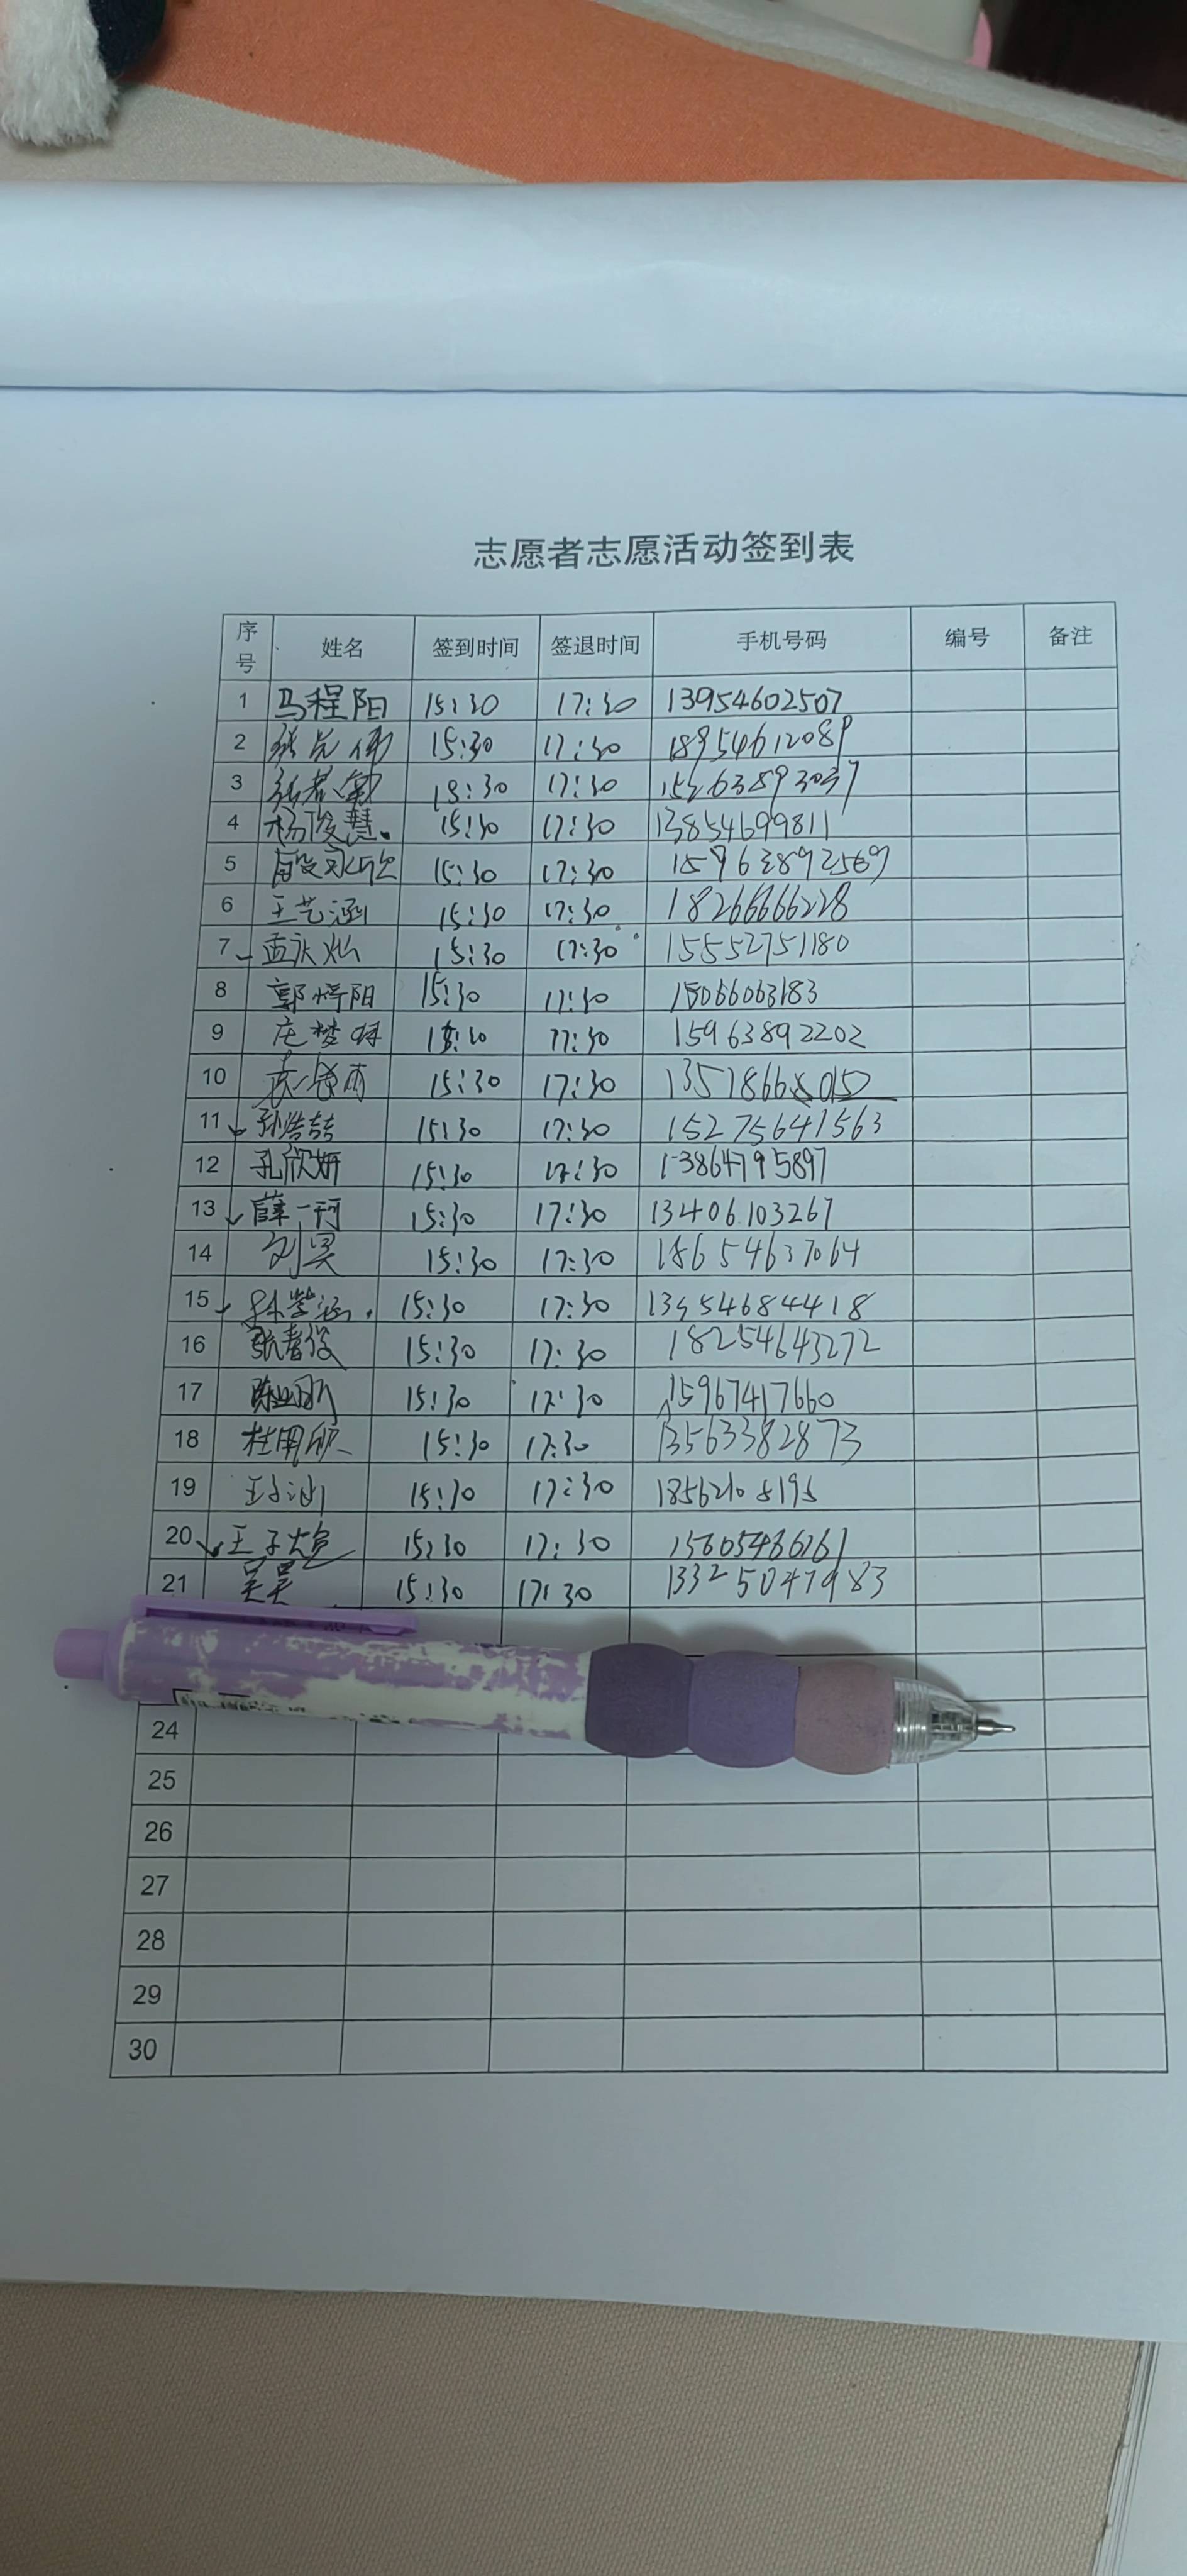 志愿者志愿活动签到表
序号 姓名 签到时间 签退时间 手机号码 编号 备注
1 马程阳 15:30 17:30 13954602507
2 15:30 17:30 18954612089
3 17:30
4 杨俊慧 15:30 17:30 13854699811
5 15:30 17:30 15963892569
6 王艺涵 15:30 17:30 18266666228
7 15:30 17:30 15552751180
8 15:30 17:30 15066063183
9 庄梦 17:30 15963892202
10 15:30 17:30
11 孙浩喆 15:30 17:30 15275641563
12 孔欣妍 15:30 17:30 13864795897
13 薛一珂 15:30 17:30 13406103267
14 刘昊 15:30 17:30 18654637064
15 15:30 17:30 13954684418
16 15:30 17:30 18254643272
17 15:30 17:30 15967417660
18 15:30 17:30 13563382873
19 15:30 17:30
20 王子 15:30 17:30
21 吴昊 15:30 17:30 13325047983
24
25
26
27
28
29
30